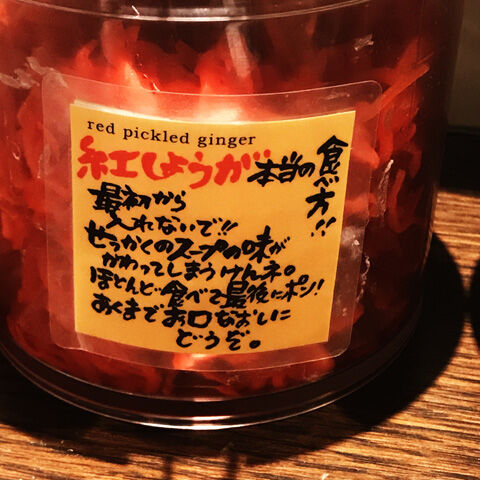 red pickled ginger
紅しょうが 本当の食べ方!!
最初から
入れないで!!
せっかくのスープの味が
かわってしまうけんネ。
ほとんど食べて最後にポン!
あくまでお口なおしに
どうぞ。